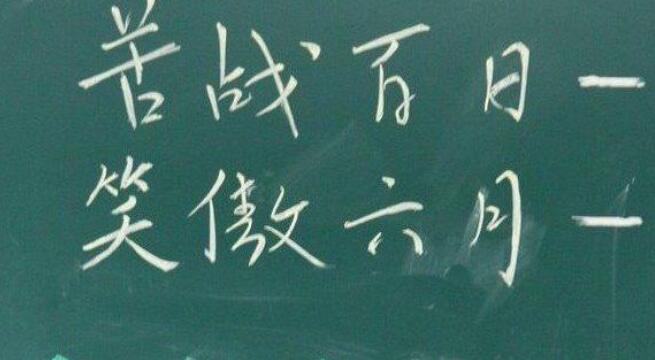 苦战百日一
笑傲六月一